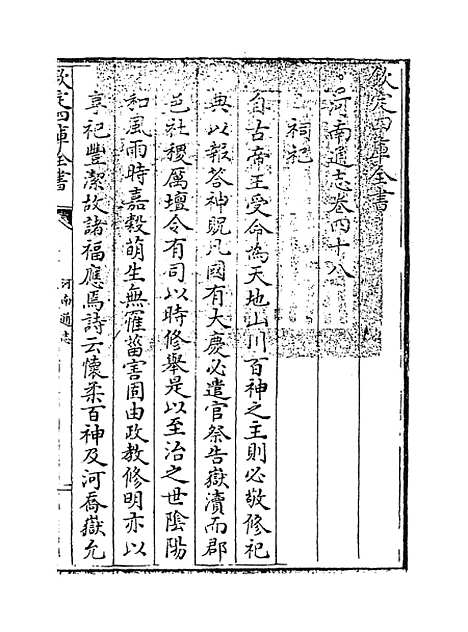 欽定四庫全書
河南通志卷四十八
祠祀
自古帝王受命為天地山川百神之主則必敬修祀
典以報答神貺凡國有大慶必遣官祭告嶽瀆而郡
邑社稷厲壇令有司以時修舉是以至治之世陰陽
和風雨時嘉穀萌生無罹菑害固由政教修明亦以
享祀豐潔故諸福應焉詩云懷柔百神及河喬嶽允
欽定四庫全書
河南通志
一